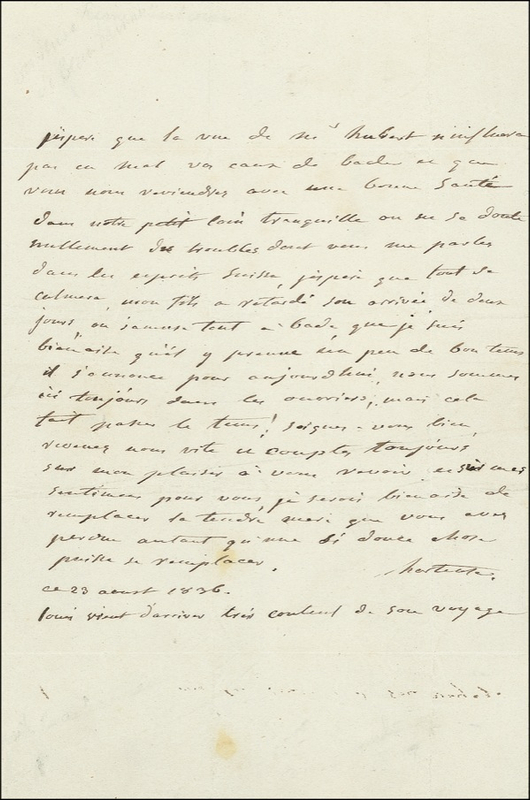 j'espere que la vue de mr hubert n'influera
pas en mal vos eaux de bade et que
vous nous reviendrez avec une bonne Santé
dans notre petit Coin tranquille on ne se doute
nullement de troubles dont vous me parlez
dans les esprits Suisse, j'espere que tout se
calmera, mon fils a retardé son arrivée de deux
jours, on s'amuse tant a bade que je suis
bienaise qu'il y prenne un peu de bon tems
il s'annonce pour aujourdhui, nous sommes
ici toujours dans les ouvriers, mais cela
fait passer le tems! Soignez-vous bien,
revenez nous vite et comptez toujours
sur mon plaisir a vous revoir et sur mes
sentimens pour vous, je serois bienaise de
remplacer la tendre mere que vous avez
perdue autant qu'une Si douce chose
puisse se remplacer.
hortense.
ce 23 aoust 1836.
louis vient d'arriver très content de son voyage